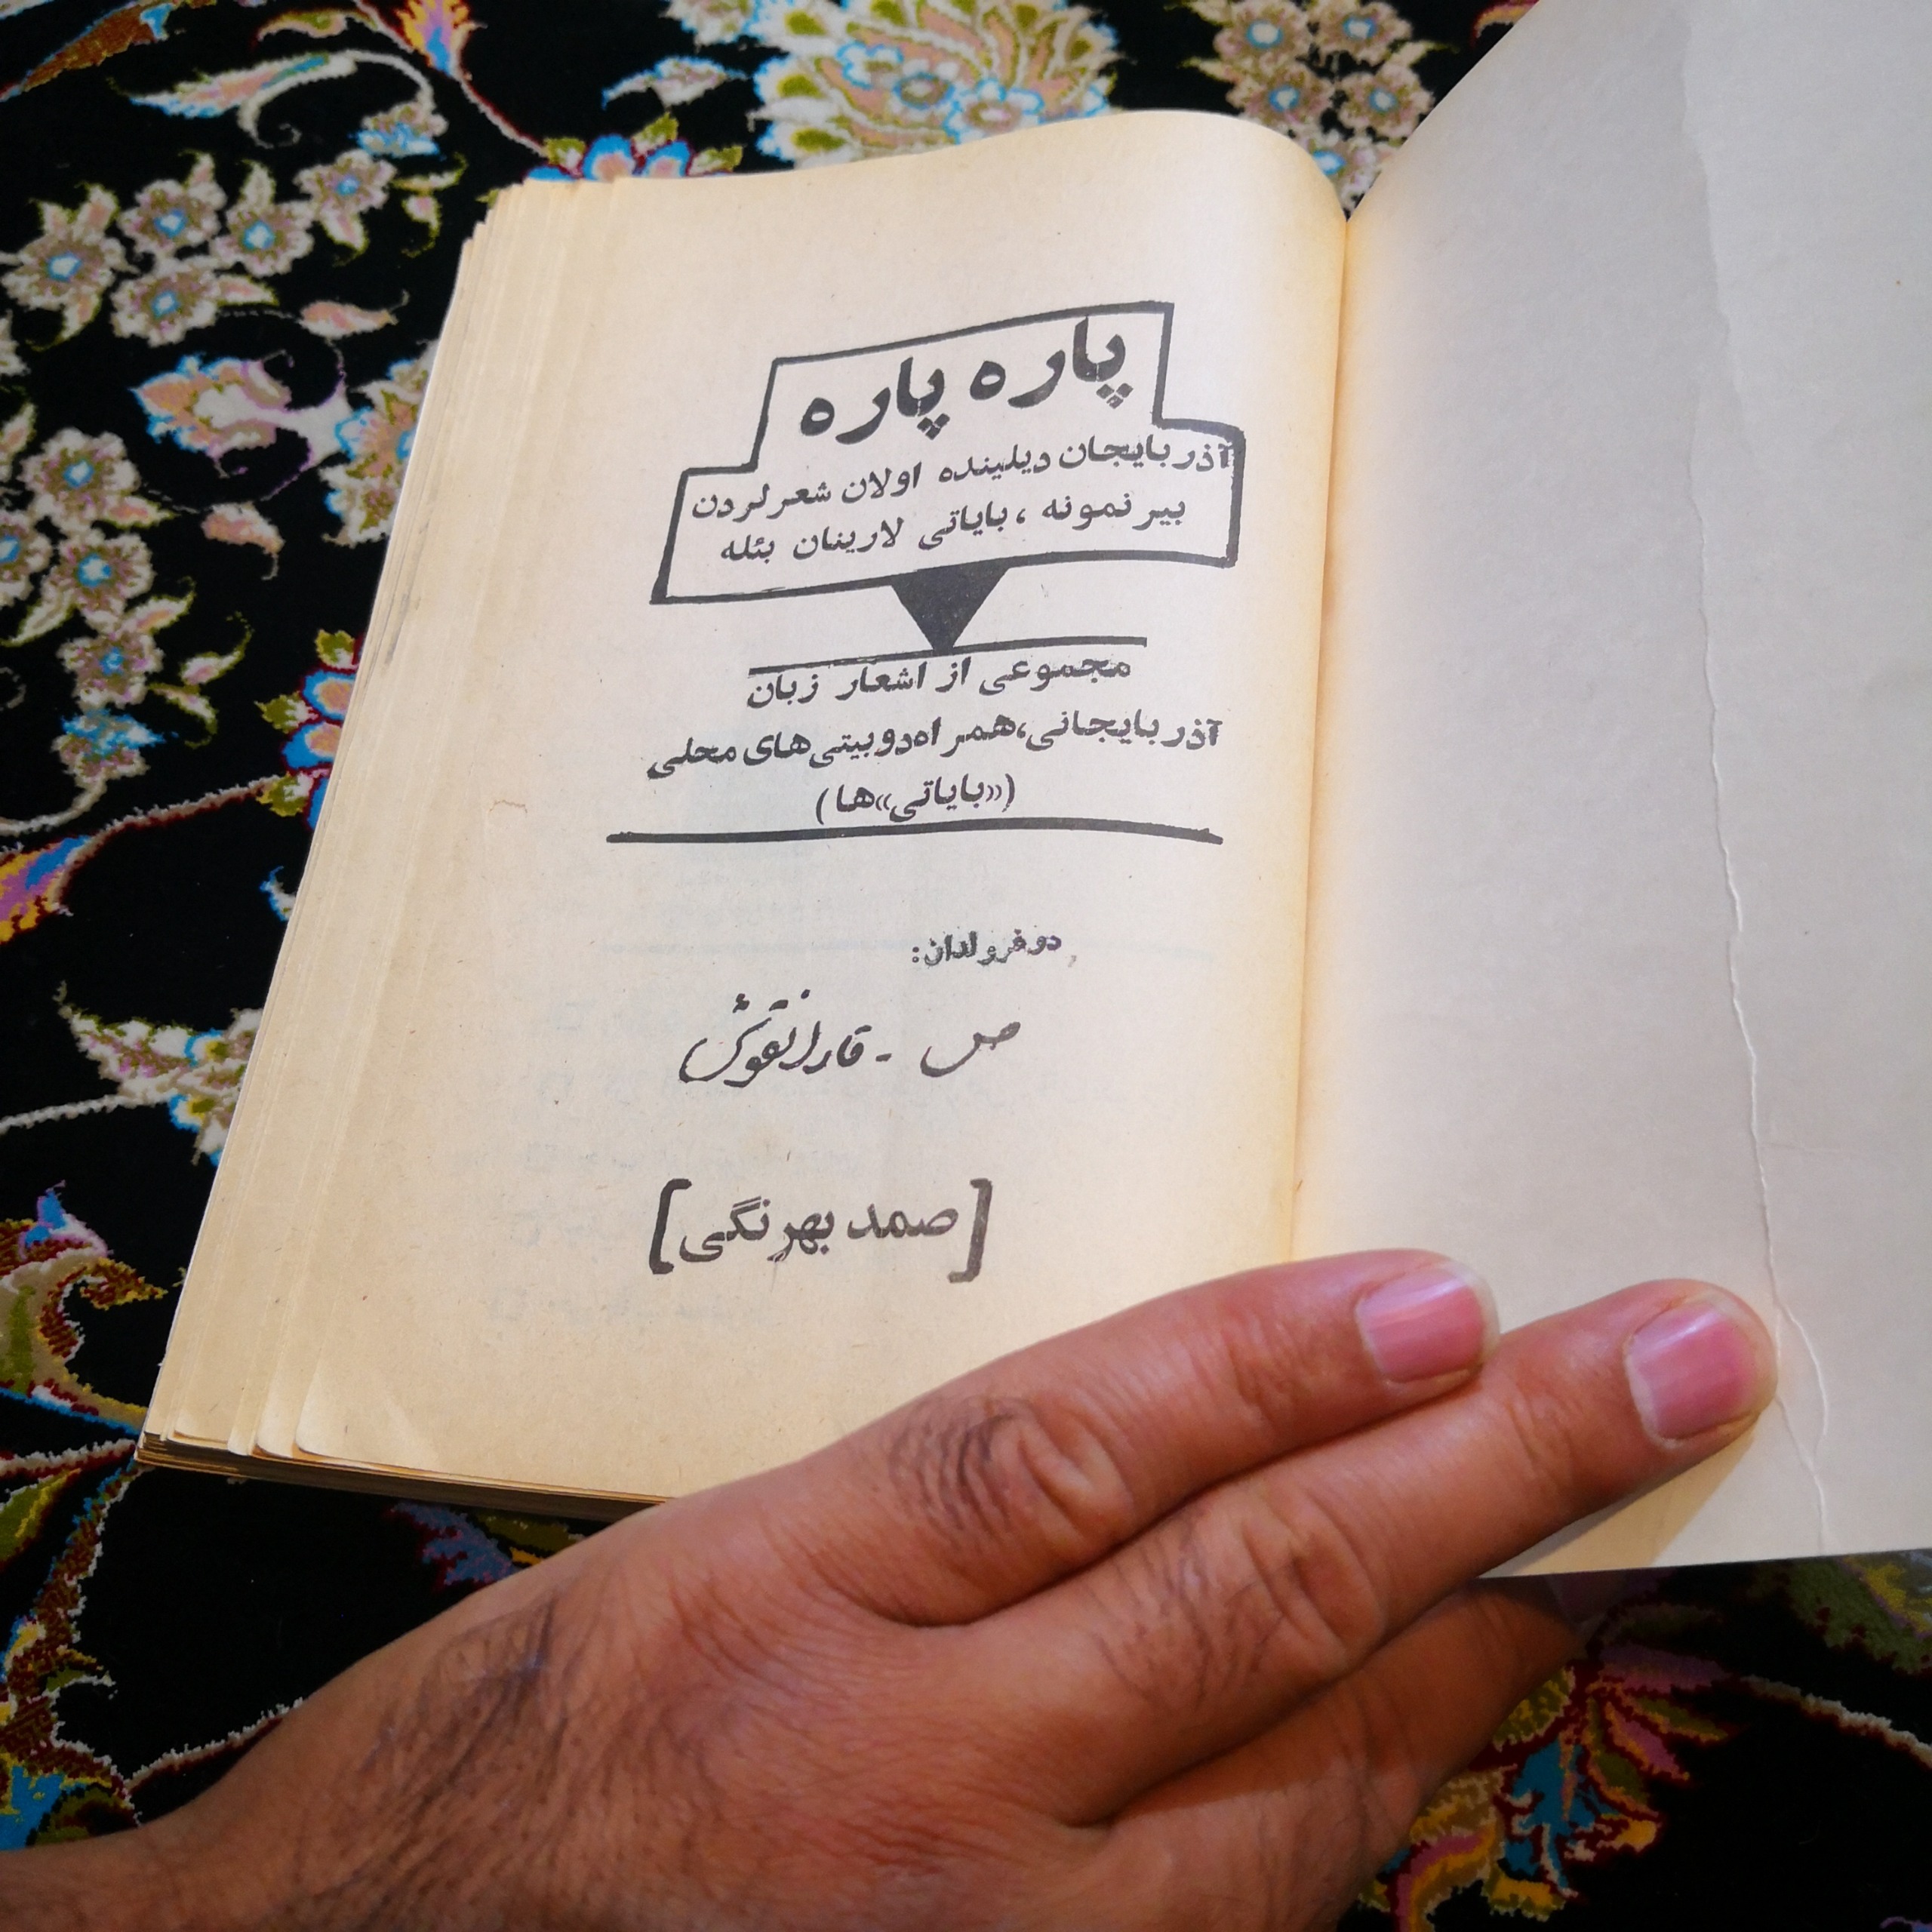 پاره پاره
آذربایجان دیلینده اولان شعرلردن
بیر نمونه ، بایاتی لارینان بئله
مجموعی از اشعار زبان
آذربایجانی،همراه دوبیتی‌های محلی
(«بایاتی»ها)
دوفرولدان:
ص - قارانقوش
[صمد بهرنگی]